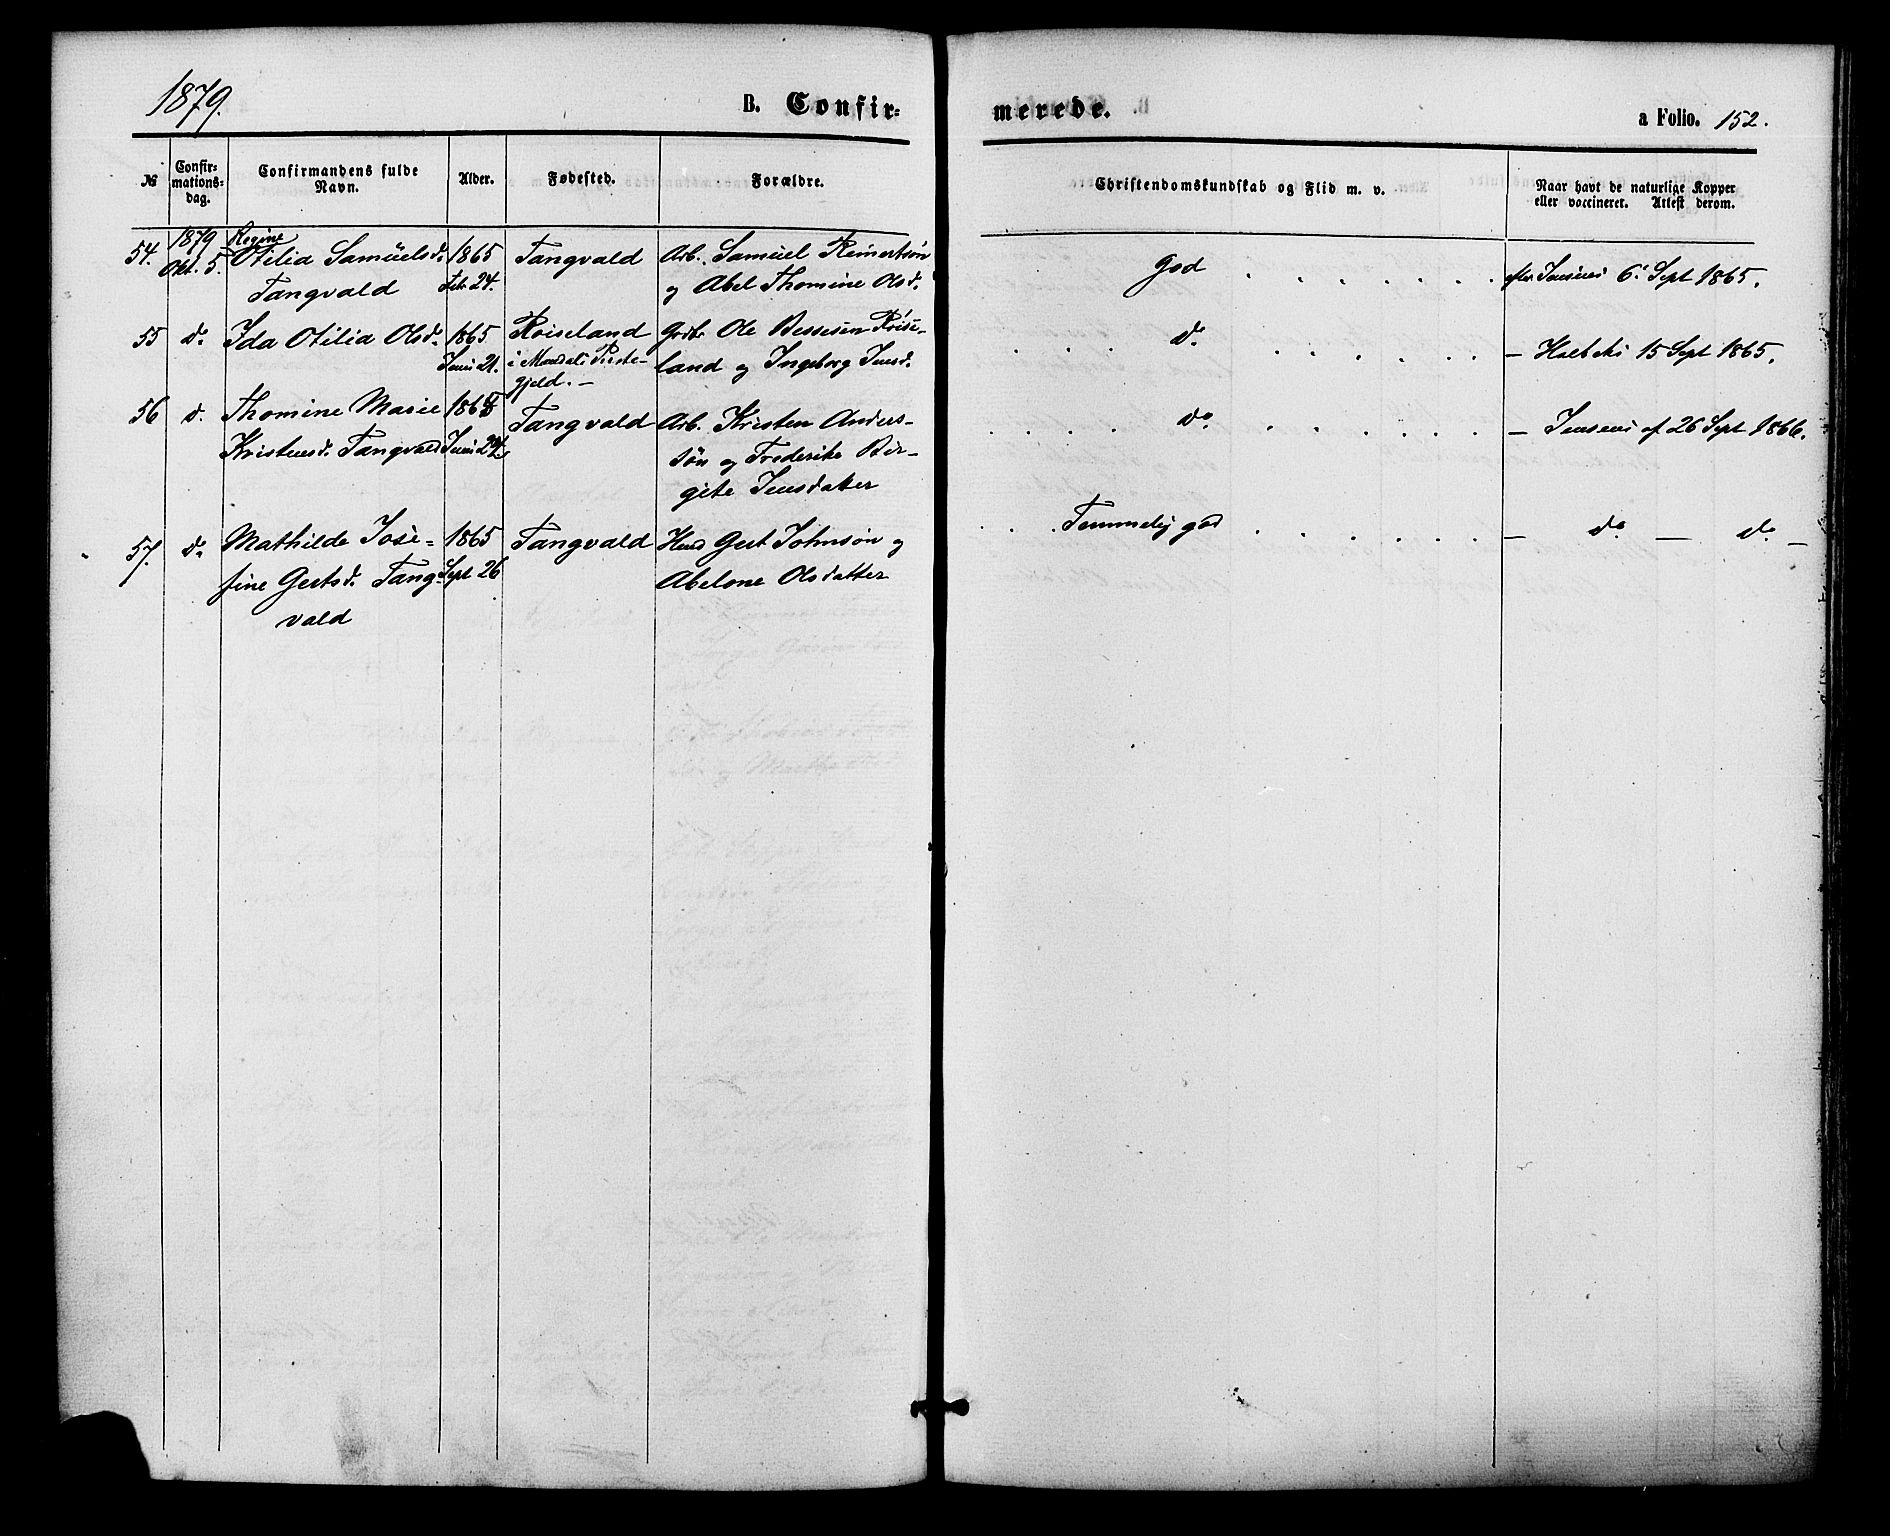 1879.
B. Confir=
merede.
a Folio. 152.
№
Confir-
mations-
dag.
Confirmandens fulde
Navn.
Alder.
Fødested.
Forældre.
Christendomskundskab og Flid m. v.
Naar havt de naturlige Kopper
eller vaccineret. Attest derom.
54.
1879
Okt. 5.
Regine
Otilia Samuelsd.
Tangvald
1865
Febr 24.
Tangvald
Arb. Samuel Reinertsøn
og Abel Thomine Olsd.
God
Jensens 6. Sept 1865.
55
do
Ida Otilia Olsd.
1865
Juni 21.
Røiseland
i Mandals Præste-
gjeld. —
Grdbr Ole Bessesen Røise-
land og Ingeborg Jensd.
do
— Holbeks 15 Sept 1865.
56
d.
Thomine Marie
Kristensd. Tangvald
1865
Juni 24.
Tangvald
Arb. Kristen Anders-
søn og Frederike Bir-
gite Jensdatter
do
— Jensens af 26 Sept 1866.
57.
do
Mathilde Jose-
fine Gertsd. Tang-
vald
1865
Sept 26
Tangvald
Gert Johnsøn og
Abelone Olsdatter
Temmelig god
— do — do —